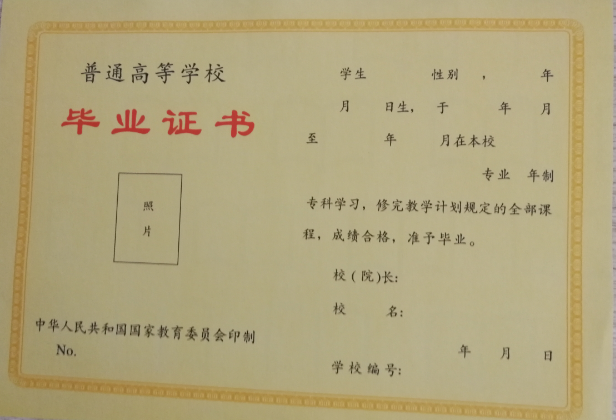 普通高等学校
毕业证书
照
片
中华人民共和国国家教育委员会印制
No.
学生 性别 , 年
月 日生, 于 年 月
至 年 月在本校
专业 年制
专科学习, 修完教学计划规定的全部课
程, 成绩合格, 准予毕业。
校(院)长:
校 名:
年 月 日
学校编号: